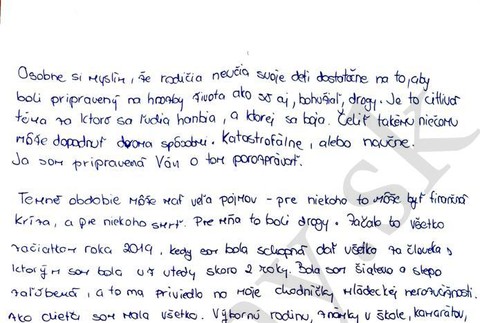 Osobne si myslím, že rodičia neučia svoje deti dostatočne na to, aby
boli pripravený na hrozby života ako sú aj, bohužiaľ, drogy. Je to citlivá
téma za ktorú sa ľudia hanbia, a ktorej sa boja. Čeliť takému niečomu
môže dopadnúť dvoma spôsobmi. Katastrofálne, alebo naučne.
Ja som pripravená Vám o tom porozprávať.
Temné obdobie môže mať veľa pojmov - pre niekoho to môže byť finančná
kríza, a pre niekoho smrť. Pre mňa to boli drogy. Začalo to všetko
začiatkom roka 2019, kedy som bola schopná dať všetko za človeka s
ktorým som bola už vtedy skoro 2 roky. Bola som šialene a slepo
zaľúbená, a to ma priviedlo na moje chodníčky mládeckej nerozvážnosti.
Ako dieťa som mala všetko. Výbornú rodinu, známky v škole, kamarátov,
.sk